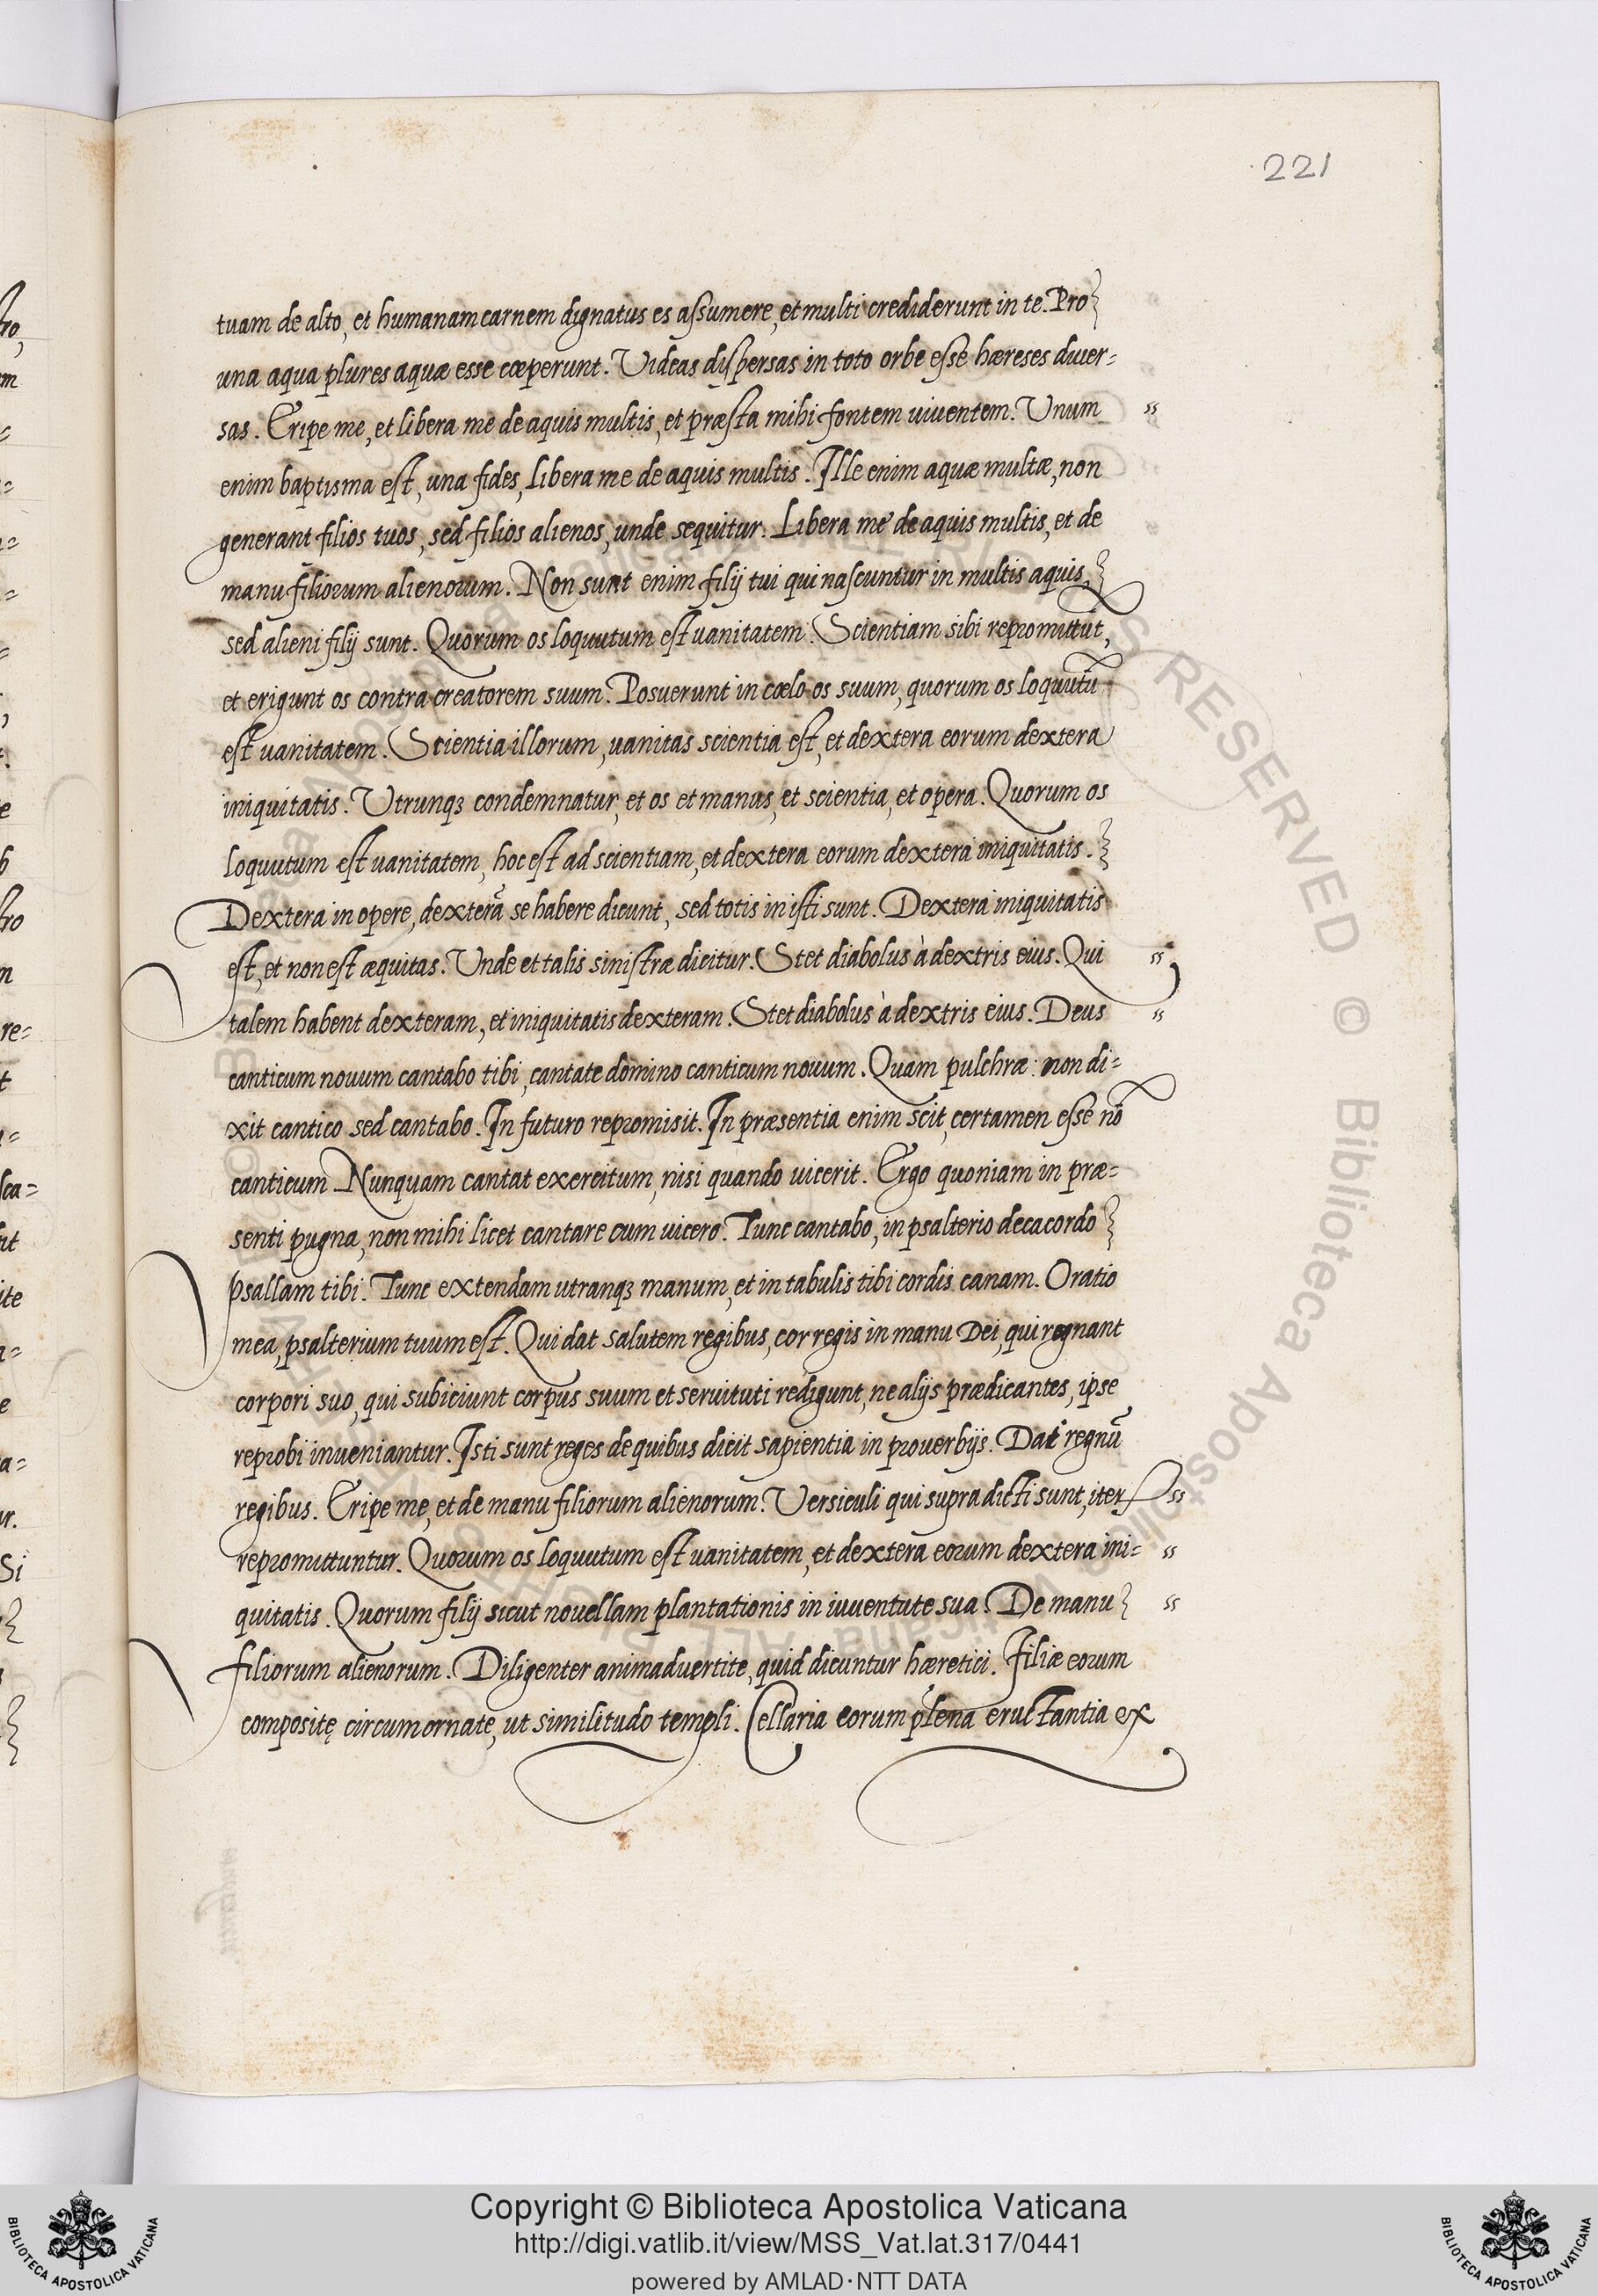 221
tuam de alto, et humanam carnem dignatus es assumere, et multi crediderunt in te. Pro
una aqua plures aquæ esse cœperunt. Videas dispersas in toto orbe esse hæreses diuer=
sas. Eripe me, et libera me de aquis multis, et præsta mihi fontem uiuentem. Unum
enim baptisma est, una fides, libera me de aquis multis. Ille enim aquæ multæ, non
generant filios tuos, sed filios alienos, unde sequitur. Libera me de aquis multis, et de
manu filiorum alienorum. Non sunt enim filij tui qui nascuntur in multis aquis,
sed alieni filij sunt. Quorum os loquutum est uanitatem. Scientiam sibi repromittūt,
et erigunt os contra creatorem suum. Posuerunt in cœlo os suum, quorum os loquutū
est uanitatem. Scientia illorum, uanitas scientia est, et dextera eorum dextera
iniquitatis. Utrunqꝫ condemnatur, et os et manus, et scientia, et opera. Quorum os
loquutum est uanitatem, hoc est ad scientiam, et dextera eorum dextera iniquitatis.
Dextera in opere, dexterā se habere dicunt, sed totis inisti sunt. Dextera iniquitatis
est, et non est æquitas. Unde et talis sinistræ dicitur. Stet diabolus à dextris eius. Qui
talem habent dexteram, et iniquitatis dexteram. Stet diabolus à dextris eius. Deus
canticum nouum cantabo tibi, cantate domino canticum nouum. Quam pulchræ: non di=
xit cantico sed cantabo. In futuro repromisit. In præsentia enim scit, certamen esse nō
canticum Nunquam cantat exercitum, nisi quando uicerit. Ergo quoniam in præ=
senti pugna, non mihi licet cantare cum uicero. Tunc cantabo, in psalterio decacordo
psallam tibi. Tunc extendam utranqꝫ manum, et in tabulis tibi cordis canam. Oratio
mea, psalterium tuum est. Qui dat salutem regibus, cor regis in manu Dei, qui regnant
corpori suo, qui subiciunt corpus suum et seruituti redigunt, ne alijs prædicantes, ipse
reprobi inveniantur. Isti sunt reges de quibus dicit sapientia in prouerbijs. Dat regnū
regibus. Eripe me, et de manu filiorum alienorum. Versiculi qui supra dicti sunt, iter
repromittuntur. Quorum os loquutum est uanitatem, et dextera eorum dextera ini=
quitatis. Quorum filij sicut nouellam plantationis in iuuentute sua. De manu
filiorum alienorum. Diligenter animaduertite, quid dicuntur hæretici. Filiæ eorum
compositę circumornate, ut similitudo templi. Cellaria eorum plena eructantia ex
Copyright © Biblioteca Apostolica Vaticana
http://digi.vatlib.it/view/MSS_Vat.lat.317/0441
powered by AMLAD·NTT DATA